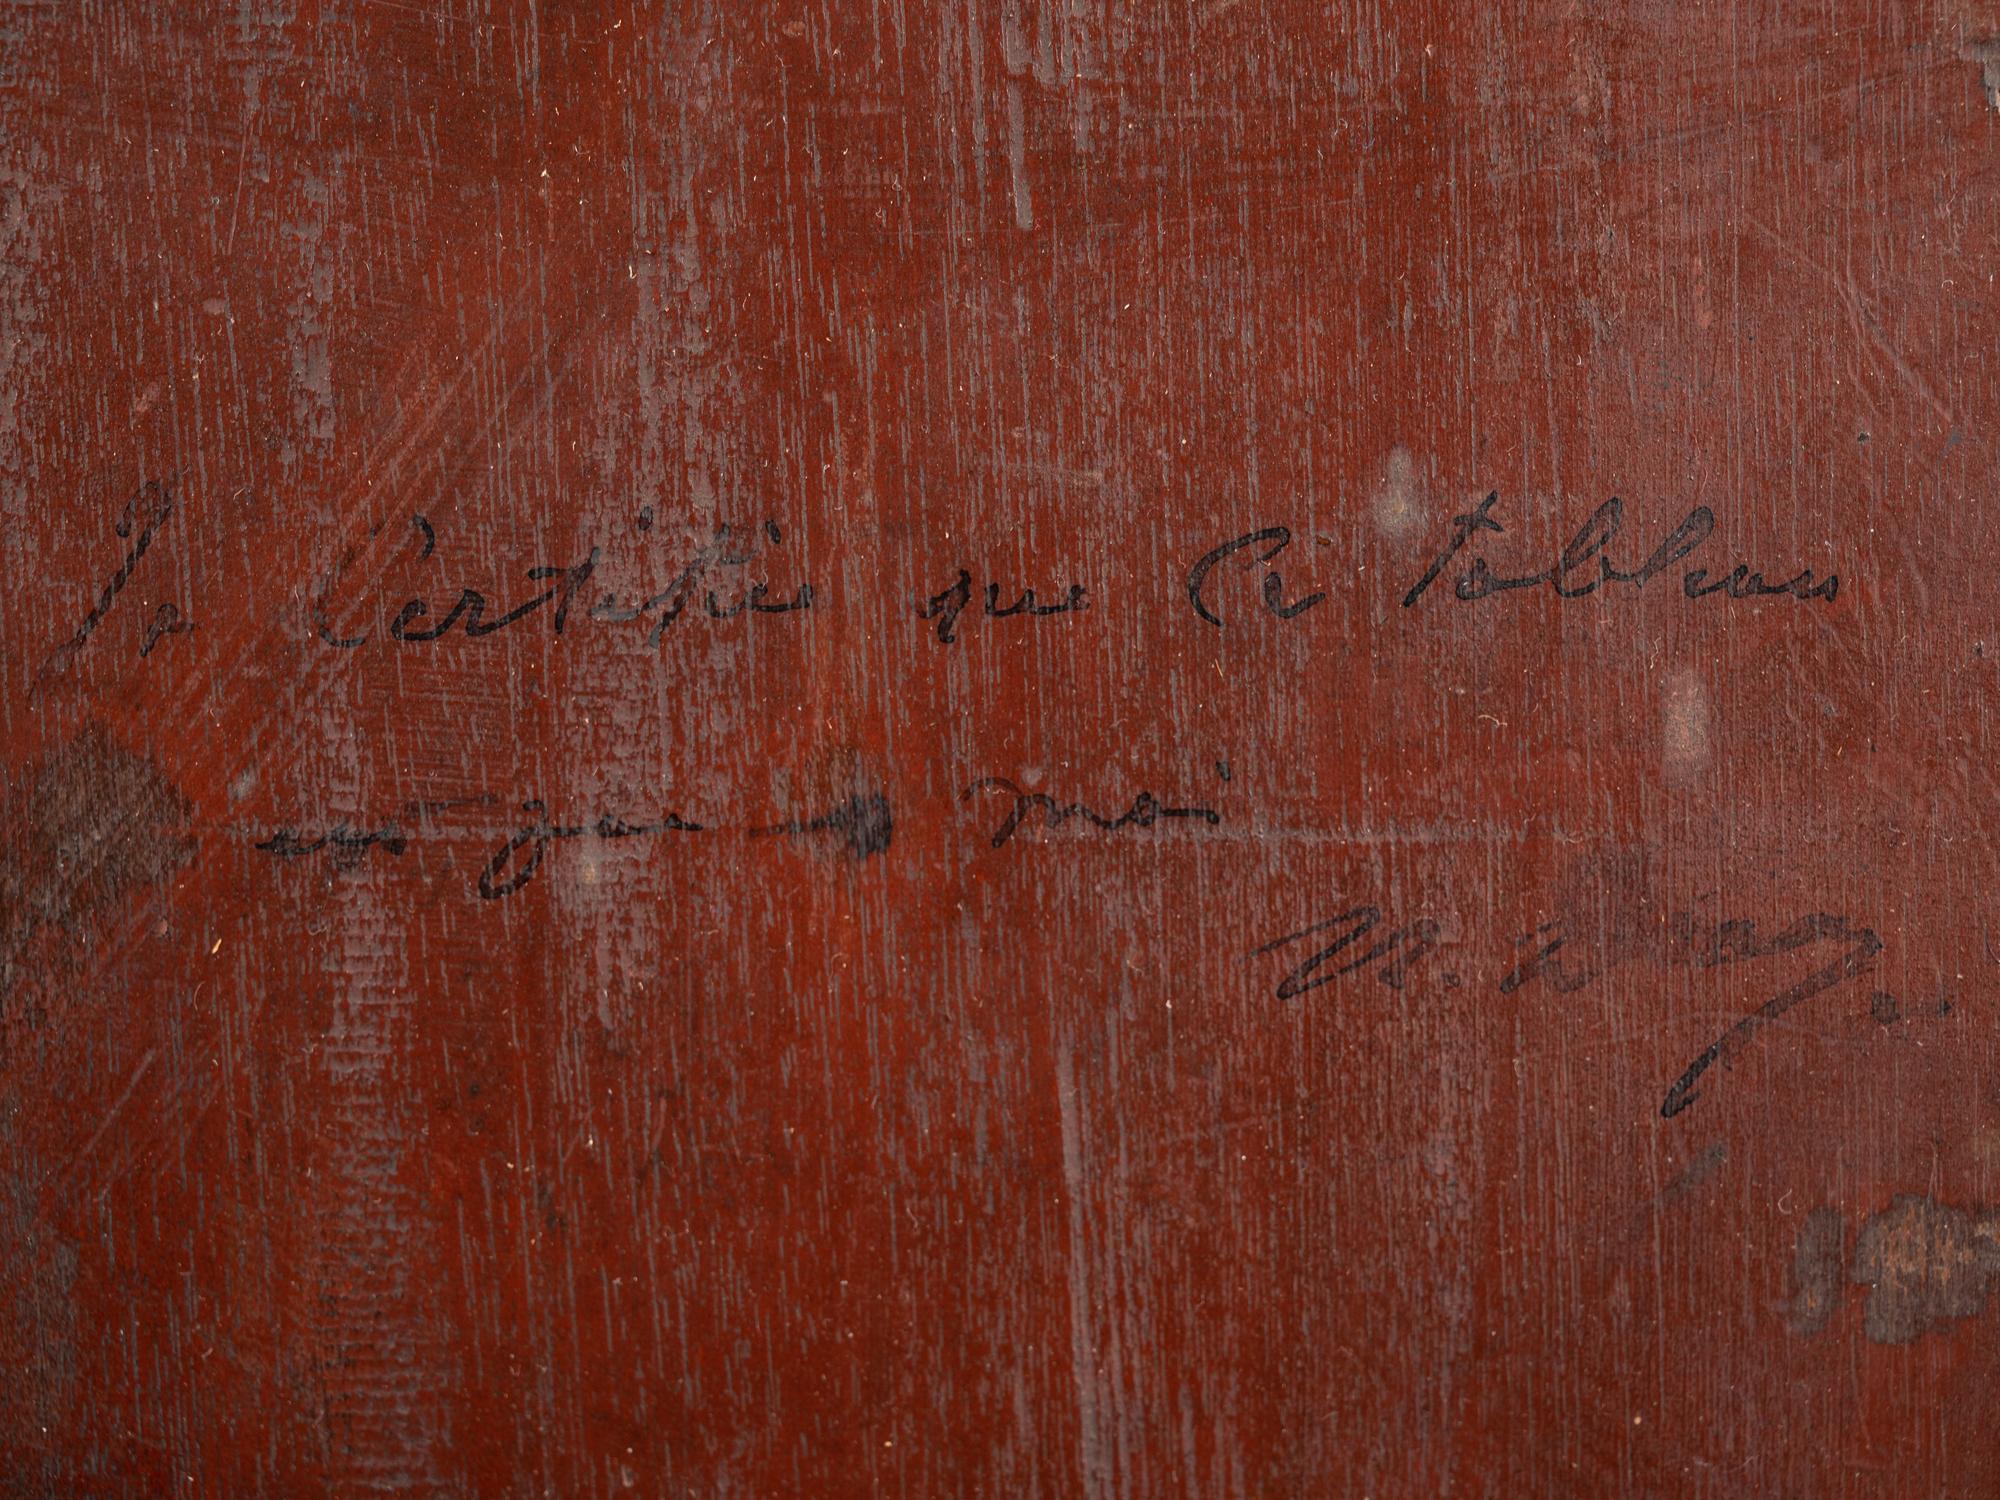 Je Certifie que Ce tableau
es par moi
N.